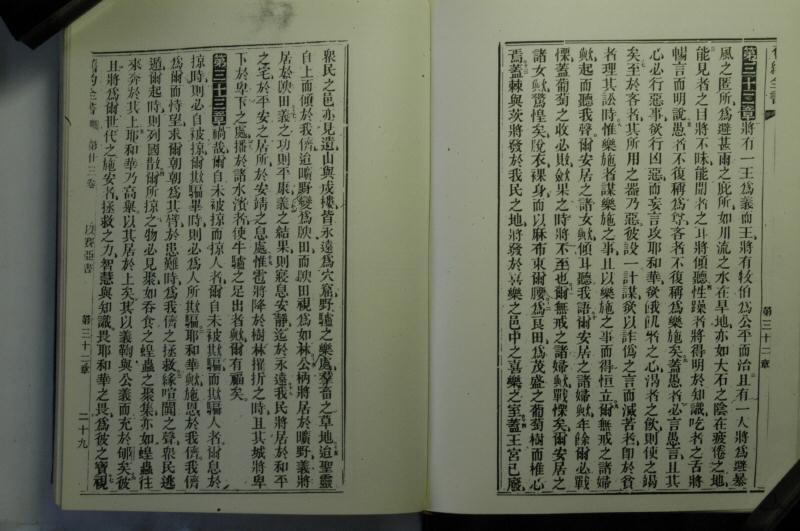 第三十二章將有一王爲義而王將有牧伯爲公平而治且有一人將爲避暴
風之匿所爲避甚雨之庇所如川流之水在旱地亦如大石之陰在疲倦之地
能見者之目將不昧能聞者之耳將傾聽性躁者將得明於知識吃者之舌將
暢言而明說愚者不復稱爲尊吝者不復稱爲樂施矣蓋愚者必言愚言且其
心必行惡事欲行凶惡而妄言攻耶和華欲俄飢者之心渴者之飲則使之竭
矣至於吝者其所用之器乃惡彼設一計謀欲以詐僞之言而滅苦者卽於貧
者理其訟時惟樂施者謀樂施之事且以樂施之事而得恒立爾無戒之諸婦
歟起而聽我聲爾安居之諸女歟傾耳聽我語爾安居之諸婦歟年餘爾必戰
慄蓋葡萄之收必敗斂果之時將不至也爾無戒之諸婦歟戰慄矣爾安居之
諸女歟驚惶矣脫衣裸身而以麻布束爾腰爲良田爲茂盛之葡萄樹而椎心
焉蓋棘與茨將發於我民之地將發於喜樂之邑中之喜樂之室蓋王宮已廢
第三十二章
衆民之邑亦見遺山與戍樓皆永遠爲穴窟野驢之樂處羣畜之草地迨聖靈
自上而傾於我儕迨曠野變爲腴田而腴田視爲如林公柄將居於曠野義將
居於腴田義之功則平康義之結果則寂息安靜迄於永遠我民將居於和平
之宅於平安之居所於安靖之息處惟雹將降於樹林摧折之時且其城將卑
下於卑下之處播於諸水濱者使牛驢之足出者歟爾有福矣
第三十三章禍哉爾自未被掠而掠人者爾自未被欺騙而欺騙人者爾息於
掠時則必自被掠爾欺騙畢時則必爲人所欺騙耶和華歟施恩於我儕我儕
爲爾而恃望求爾朝朝爲其臂於患難時爲我儕之拯救緣喧闐之聲衆民逃
遁爾起時則列國散爾所掠之物必見聚如吞食之蝗蟲之聚集亦如蝗蟲往
來奔於其上耶和華乃高舉以其居於上矣其以義鞫與公義而充於郇矣彼
且將爲爾世代之施安者拯救之力智慧與知識畏耶和華之畏爲彼之寶視
舊約全書 第廿三卷 以賽亞書 第三十二章 二十九